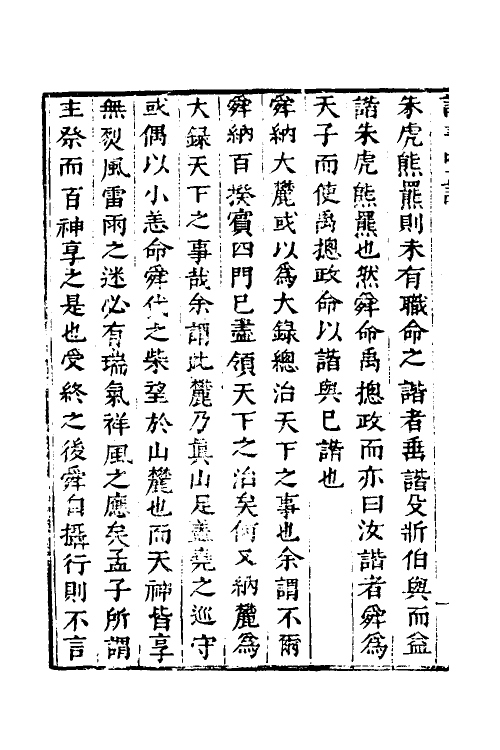 朱虎熊羆則未有職命之諧者垂諧殳斨伯與而益
諧朱虎熊羆也然舜命禹揔政而亦曰汝諧者舜爲
天子而使禹揔政命以諧與巳諧也
舜納大麓或以爲大錄總治天下之事也余謂不爾
舜納百揆賓四門巳盡領天下之治矣何又納麓爲
大録天下之事哉余謂此麓乃眞山足蓋堯之巡守
或偶以小恙命舜代之柴望於山麓也而天神皆享
無烈風雷雨之迷必有瑞氣祥風之應矣孟子所謂
主祭而百神享之是也受終之後舜自攝行則不言